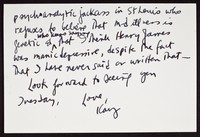 psychoanalytic jackass in St Louis who
refuses to believe that md illness is
genetic & that who knows I think Henry James
was manic depressive, despite the fact
that I have never said or written that —
Look forward to seeing you
Tuesday,
Love,
Kay